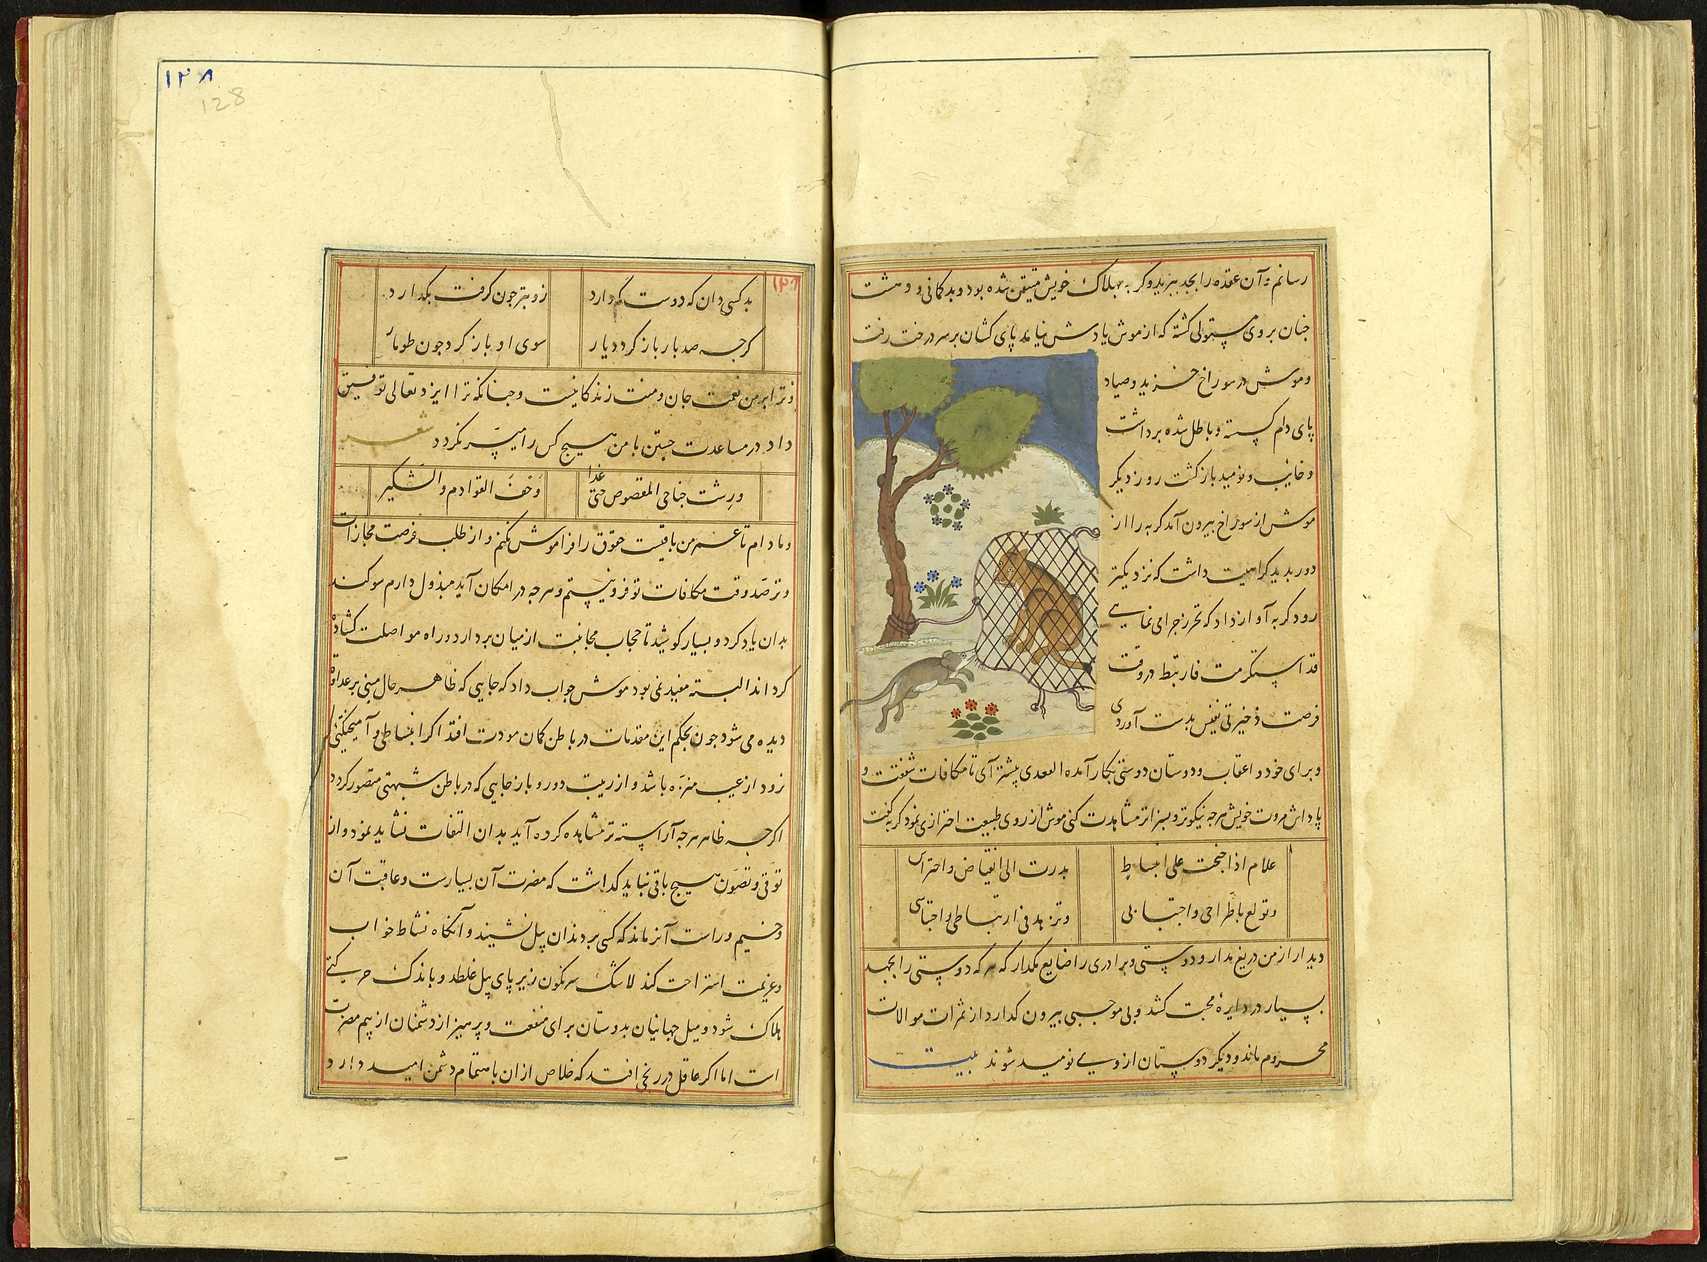 رسانم آن عقده را بجد ببرید و گربه بهلاک خویش متیقن شده بود و بدگمانی و دهشت
چنان بر وی مستولی گشته که از موش یادش نیامد پای کشان بر سر درخت رفت
و موش در سوراخ خزید و صیاد
پای دام گسسته و باطل شده برداشت
و خایب و نومید بازگشت روز دیگر
موش از سوراخ بیرون آمد گربه را از
دور بدید کراهیت داشت که نزدیکتر
رود گربه آواز داد که تحرز چرا می نمایی
قد استکرمت فارتبط در وقت
فرصت ذخیرتی نفیس بدست آوردی
و برای خود و اعقاب و دوستان دوستی بکار آمده الفغدی پیشتر آی تا مکافات شفقت و
پاداش مروت خویش هرچه نیکوتر و بسزاتر مشاهدت کنی موش از روی طبیعت احترازی نمود گربه گفت
علام اذا جنحت علی انبساط
بدرت الی انقباض و احتراس
و تولع باطراحی و اجتنابی
و تزهد فی ارتباطی و احتباسی
دیدار از من دریغ مدار و دوستی و برادری را ضایع مگذار که هر که دوستی را بجهد
بسیار در دایرهٔ محبت کشد و بی موجبی بیرون گذارد از ثمرات موالات
محروم ماند و دیگر دوستان از وی نومید شوند بیت
۱۲۸
128
۱۲۸
بد کسی دان که دوست کم دارد
زو بتر چون گرفت بگذارد
گرچه صد بار باز گردد یار
سوی او باز گرد چون طومار
و ترا بر من نعمت جان و منت زندگانیست و چنانکه ترا ایزد تعالی توفیق
داد در مساعدت جستن با من هیچ کس را میسر نگردد شعر
و رشت جناحی المقصوص حتی غدا
وحف القوادم والشکیر
و مادام تا عمر من باقیست حقوق را فراموش نکنم و از طلب فرصت مجازات
و ترصد وقت مکافات تو فرو نیستم و هرچه در امکان آید مبذول دارم سوگند
بدان یاد کرد و بسیار کوشید تا حجاب مجانبت از میان بردارد و راه مواصلت گشاده
گرداند البته مفید نمی بود موش جواب داد که جایی که ظاهر حال مبنی بر عداوت
دیده می شود چون بحکم این مقدمات در باطن گمان مودت افتد اگر انبساطی و آمیختگی
رود از عیب منزه باشد و از ریبت دور و باز جایی که در باطن شبهتی متصور گردد
اگرچه ظاهر هرچه آراسته تر مشاهده کرده آید بدان التفات نشاید نمود و از
توقی و تصون هیچ باقی نباید گذاشت که مضرت آن بسیارست و عاقبت آن
وخیم و راست آنرا ماند که کسی بر دندان پیل نشیند و آنگاه نشاط خواب
و عزیمت استراحت کند لاشک سرنگون زیر پای پیل غلطد و باندک حرکتی
هلاک شود و میل جهانیان بدوستان برای منفعت و پرهیز از دشمنان از بیم مضرت
است اما اگر عاقل در رنجی افتد که خلاص از ان باهتمام دشمن امید دارد